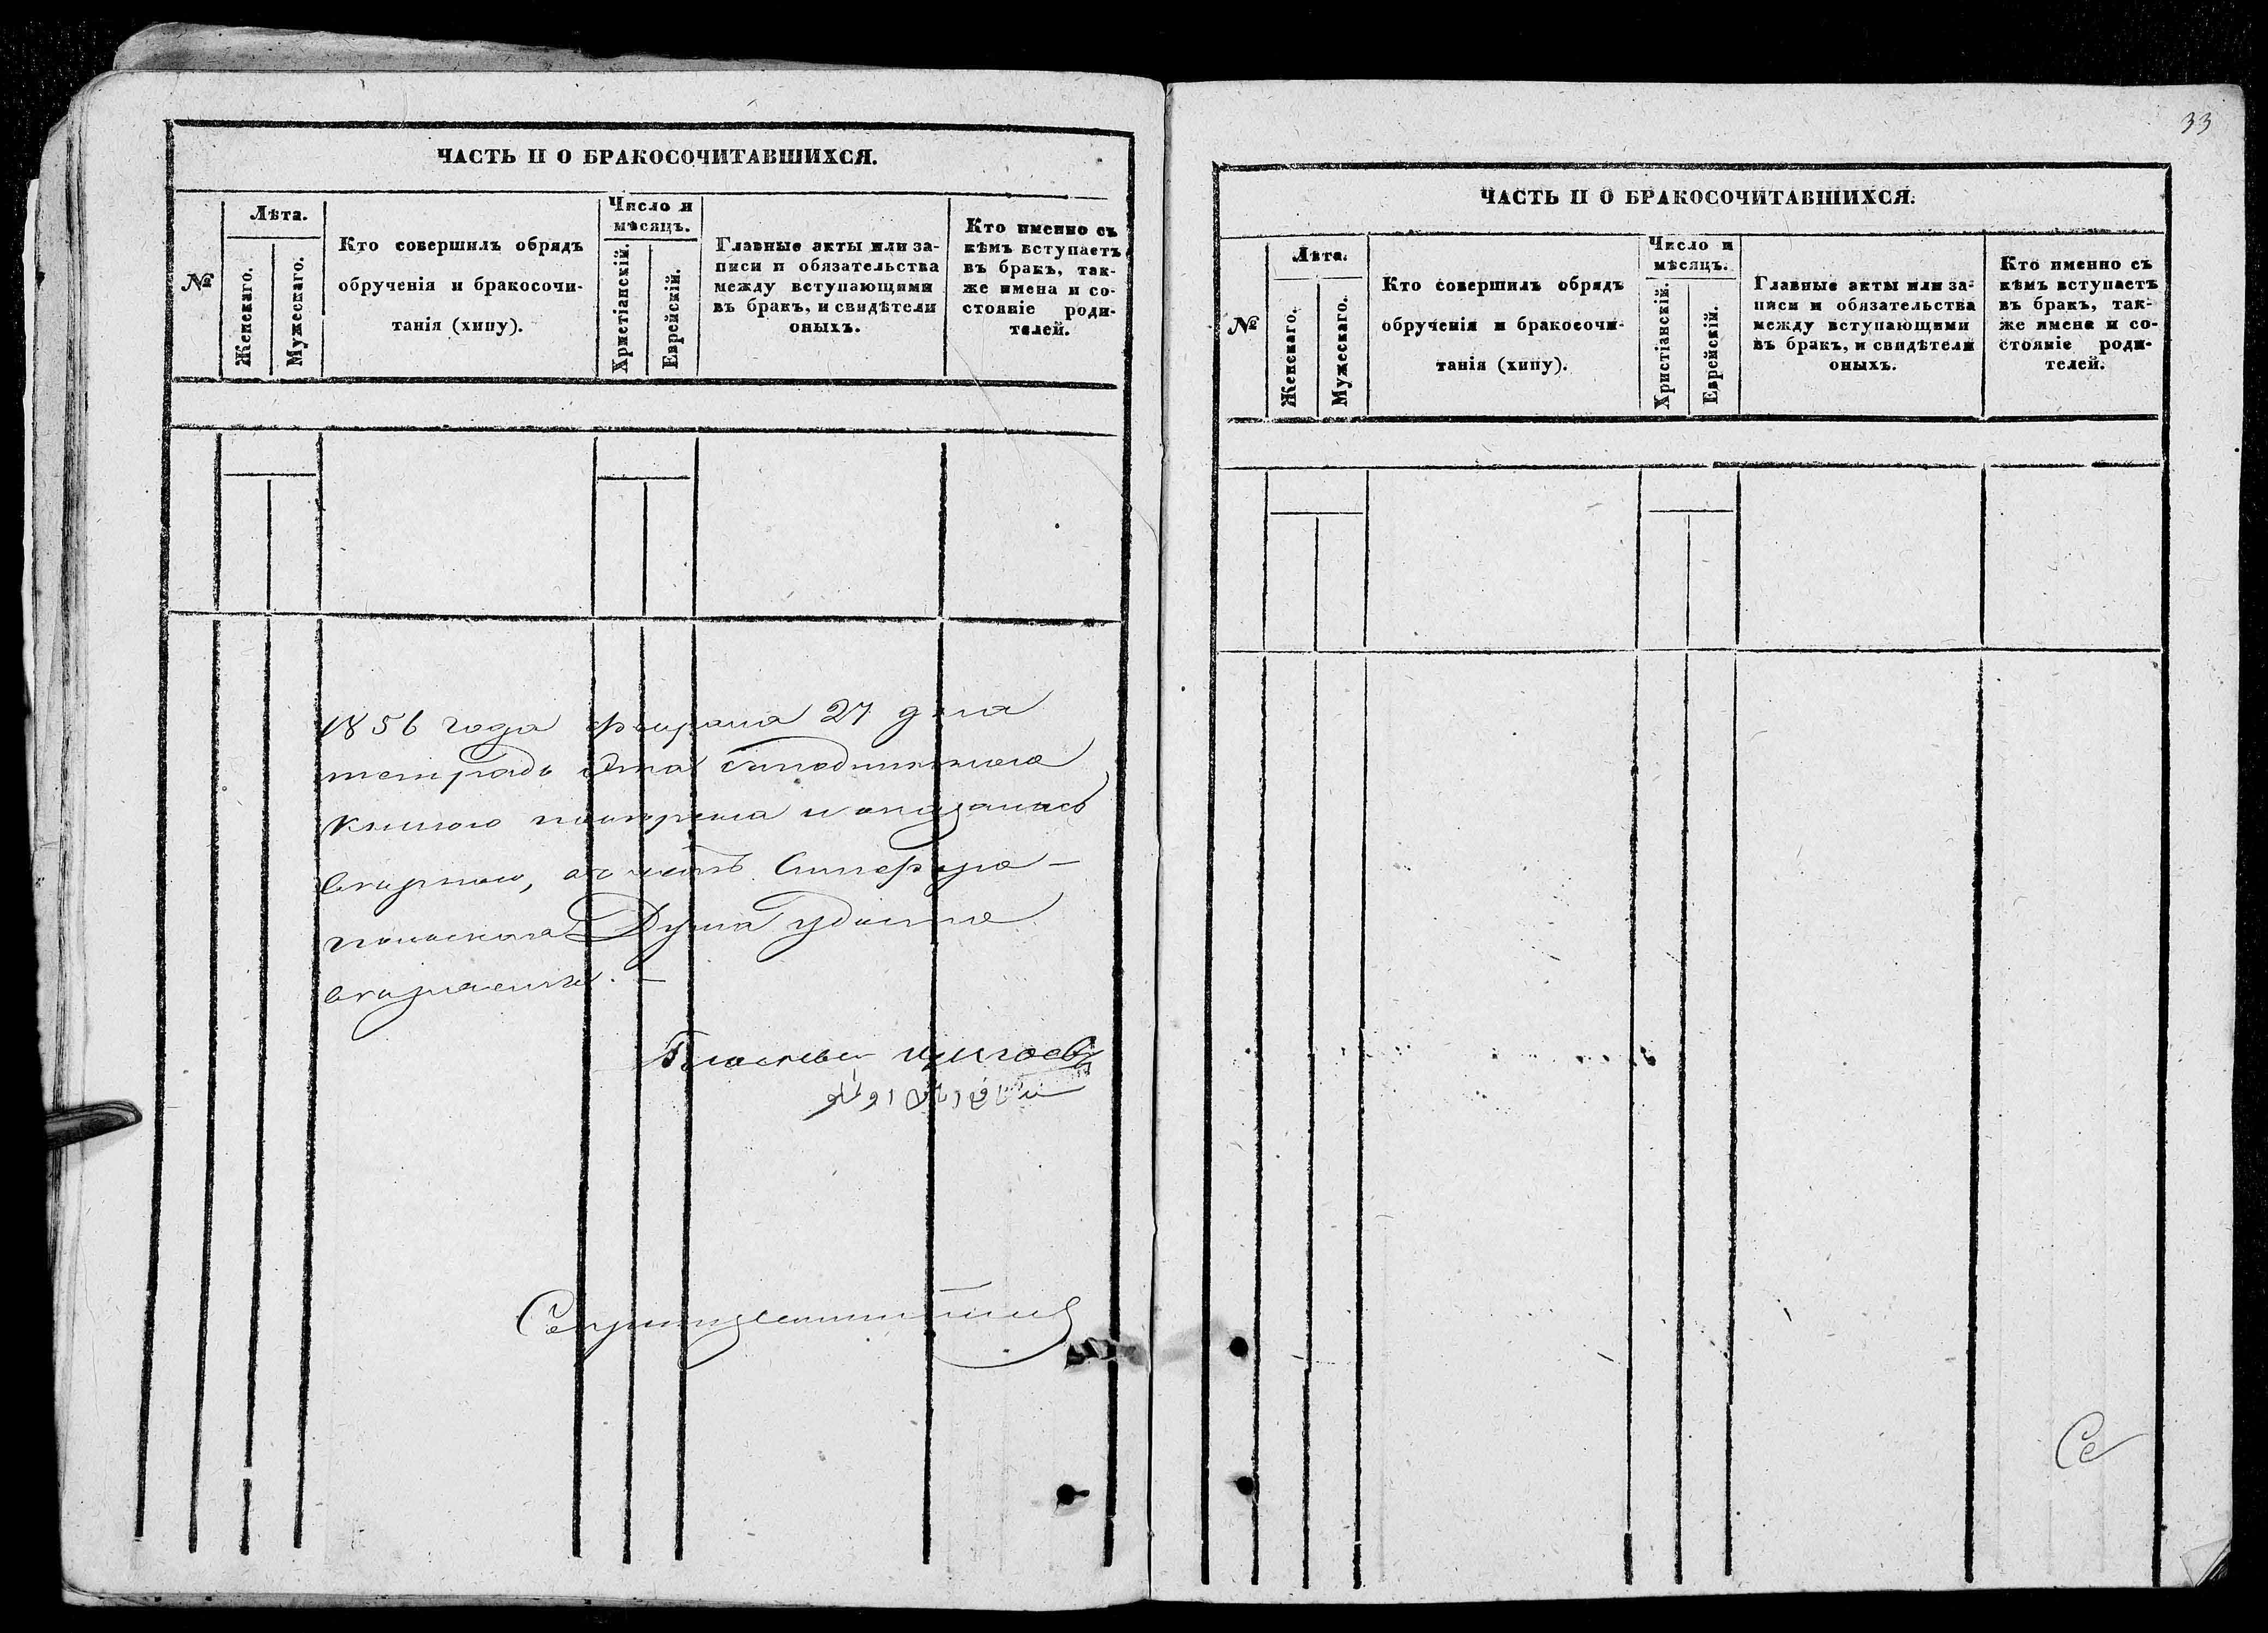 ЧАСТЬ II О БРАКОСОЧИТАВШИХСЯ.
№
Лѣта.
Женскаго.
Мужескаго.
Кто совершилъ обрядъ
обрученія и бракосочи-
танія (хипу).
Число и
мѣсяцъ.
Христіанскій.
Еврейскій.
Главные акты или за-
писи и обязательства
между вступающими
въ бракъ, и свидѣтели
оныхъ.
Кто именно съ
кѣмъ вступаетъ
въ бракъ, так-
же имена и со-
стояніе роди-
телей.
1856 года февраля 27 дня
тетрадь эта съ подлинною
книгою повѣрена и оказалась
вѣрною, въ чемъ Симферо-
польская Дума
Гласный
33
ЧАСТЬ II О БРАКОСОЧИТАВШИХСЯ.
№
Лѣта.
Женскаго.
Мужескаго.
Кто совершилъ обрядъ
обрученія и бракосочи-
танія (хипу).
Число и
мѣсяцъ.
Христіанскій.
Еврейскій.
Главные акты или за-
писи и обязательства
между вступающими
въ бракъ, и свидѣтели
оныхъ.
Кто именно съ
кѣмъ вступаетъ
въ бракъ, так-
же имена и со-
стояніе роди-
телей.
Се